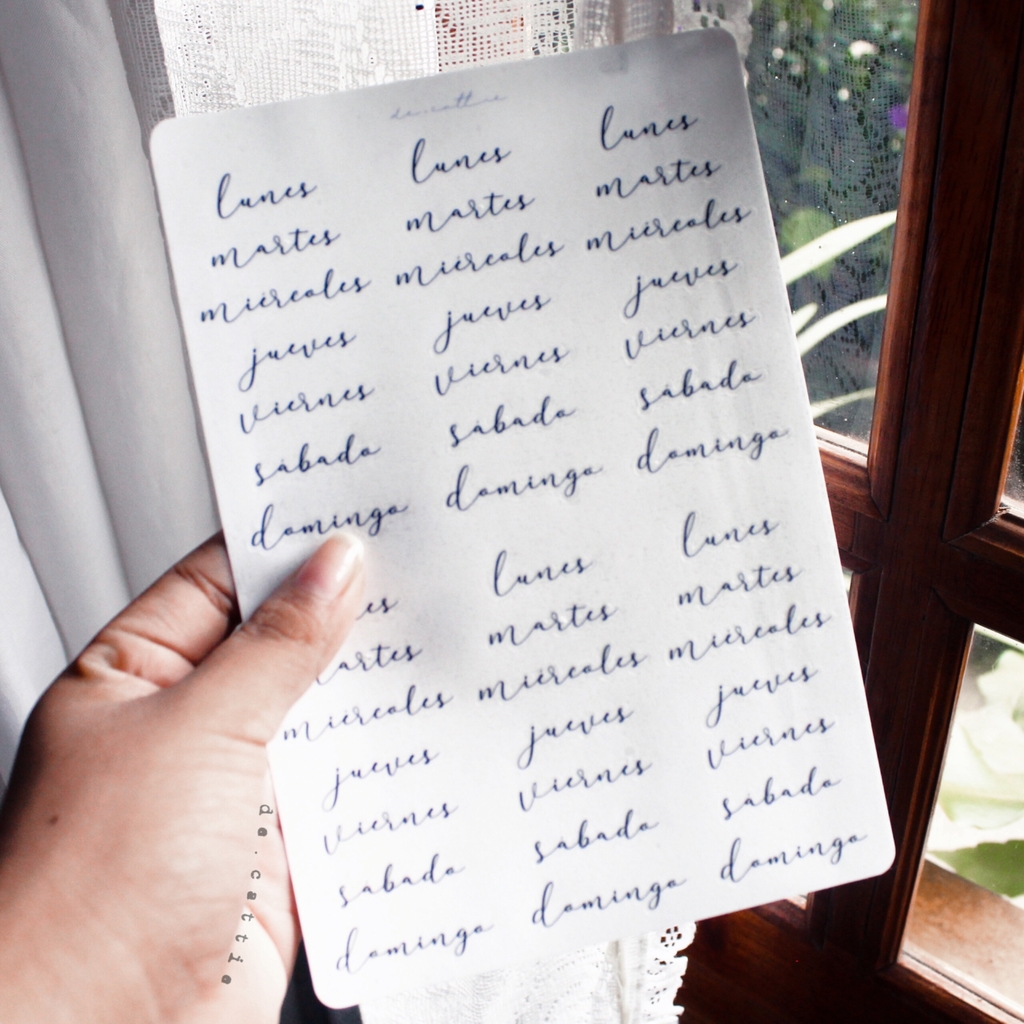 lunes lunes lunes
martes martes martes
miércoles miércoles miércoles
jueves jueves jueves
viernes viernes viernes
sábado sábado sábado
domingo domingo domingo
es lunes lunes
artes martes martes
miércoles miércoles miércoles
jueves jueves jueves
viernes viernes viernes
sábado sábado sábado
domingo domingo domingo
de.cattie